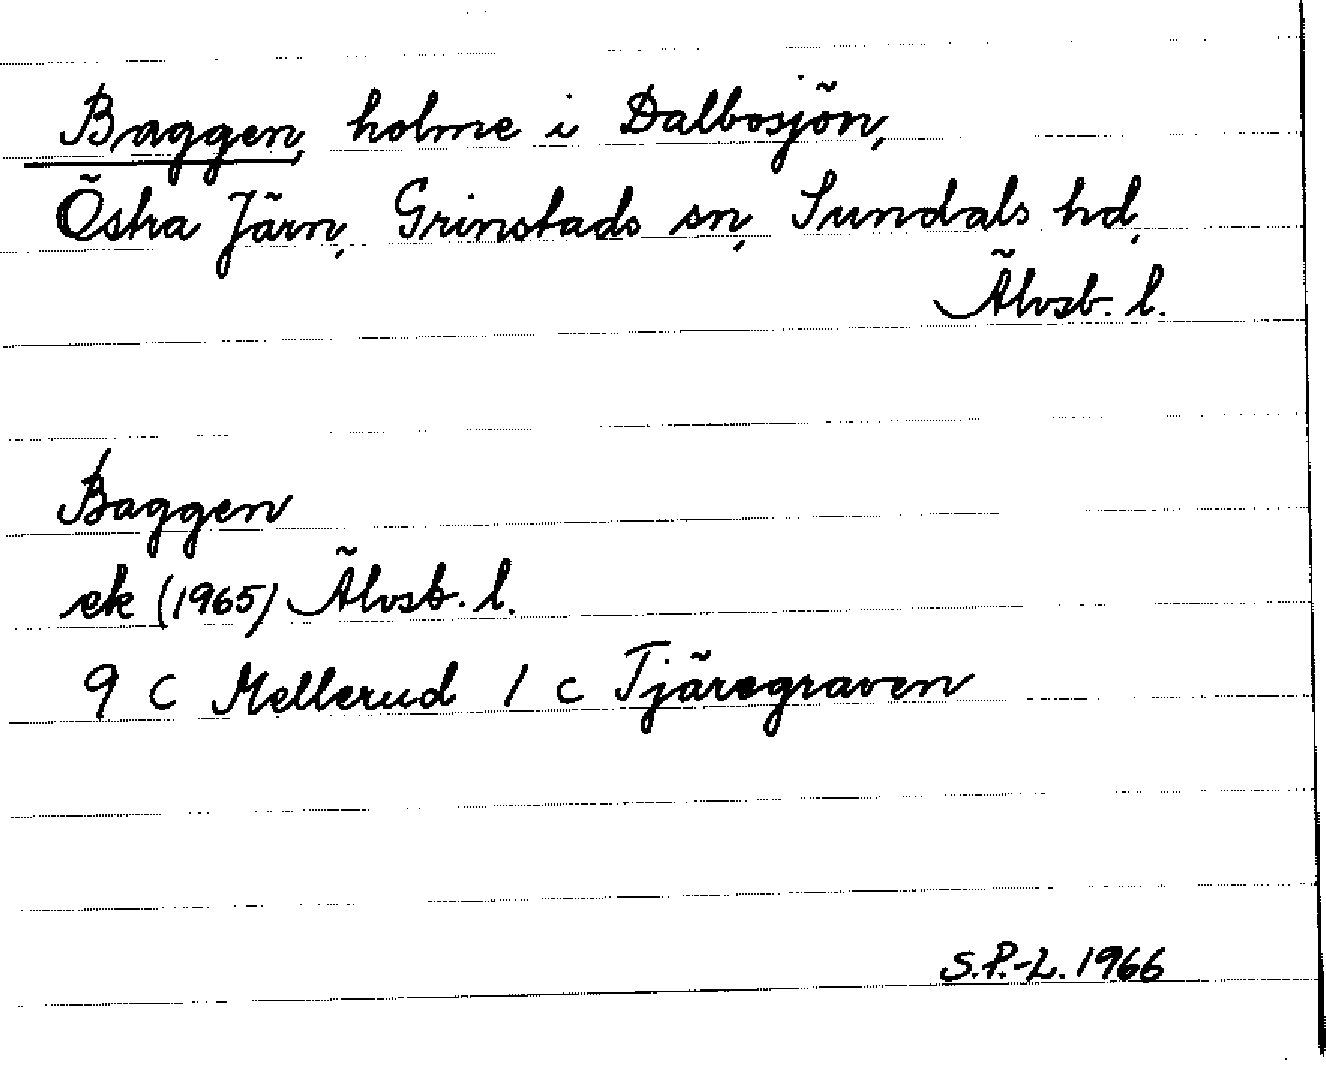 Baggen, holme i Dalbosjön,
Östra Järn, Grinstads sn, Sundals hd,
Älvsb. l.
Baggen
ek (1965) Älvsb. l.
9 C Mellerud 1 c Tjäregraven
S.P.-L. 1966